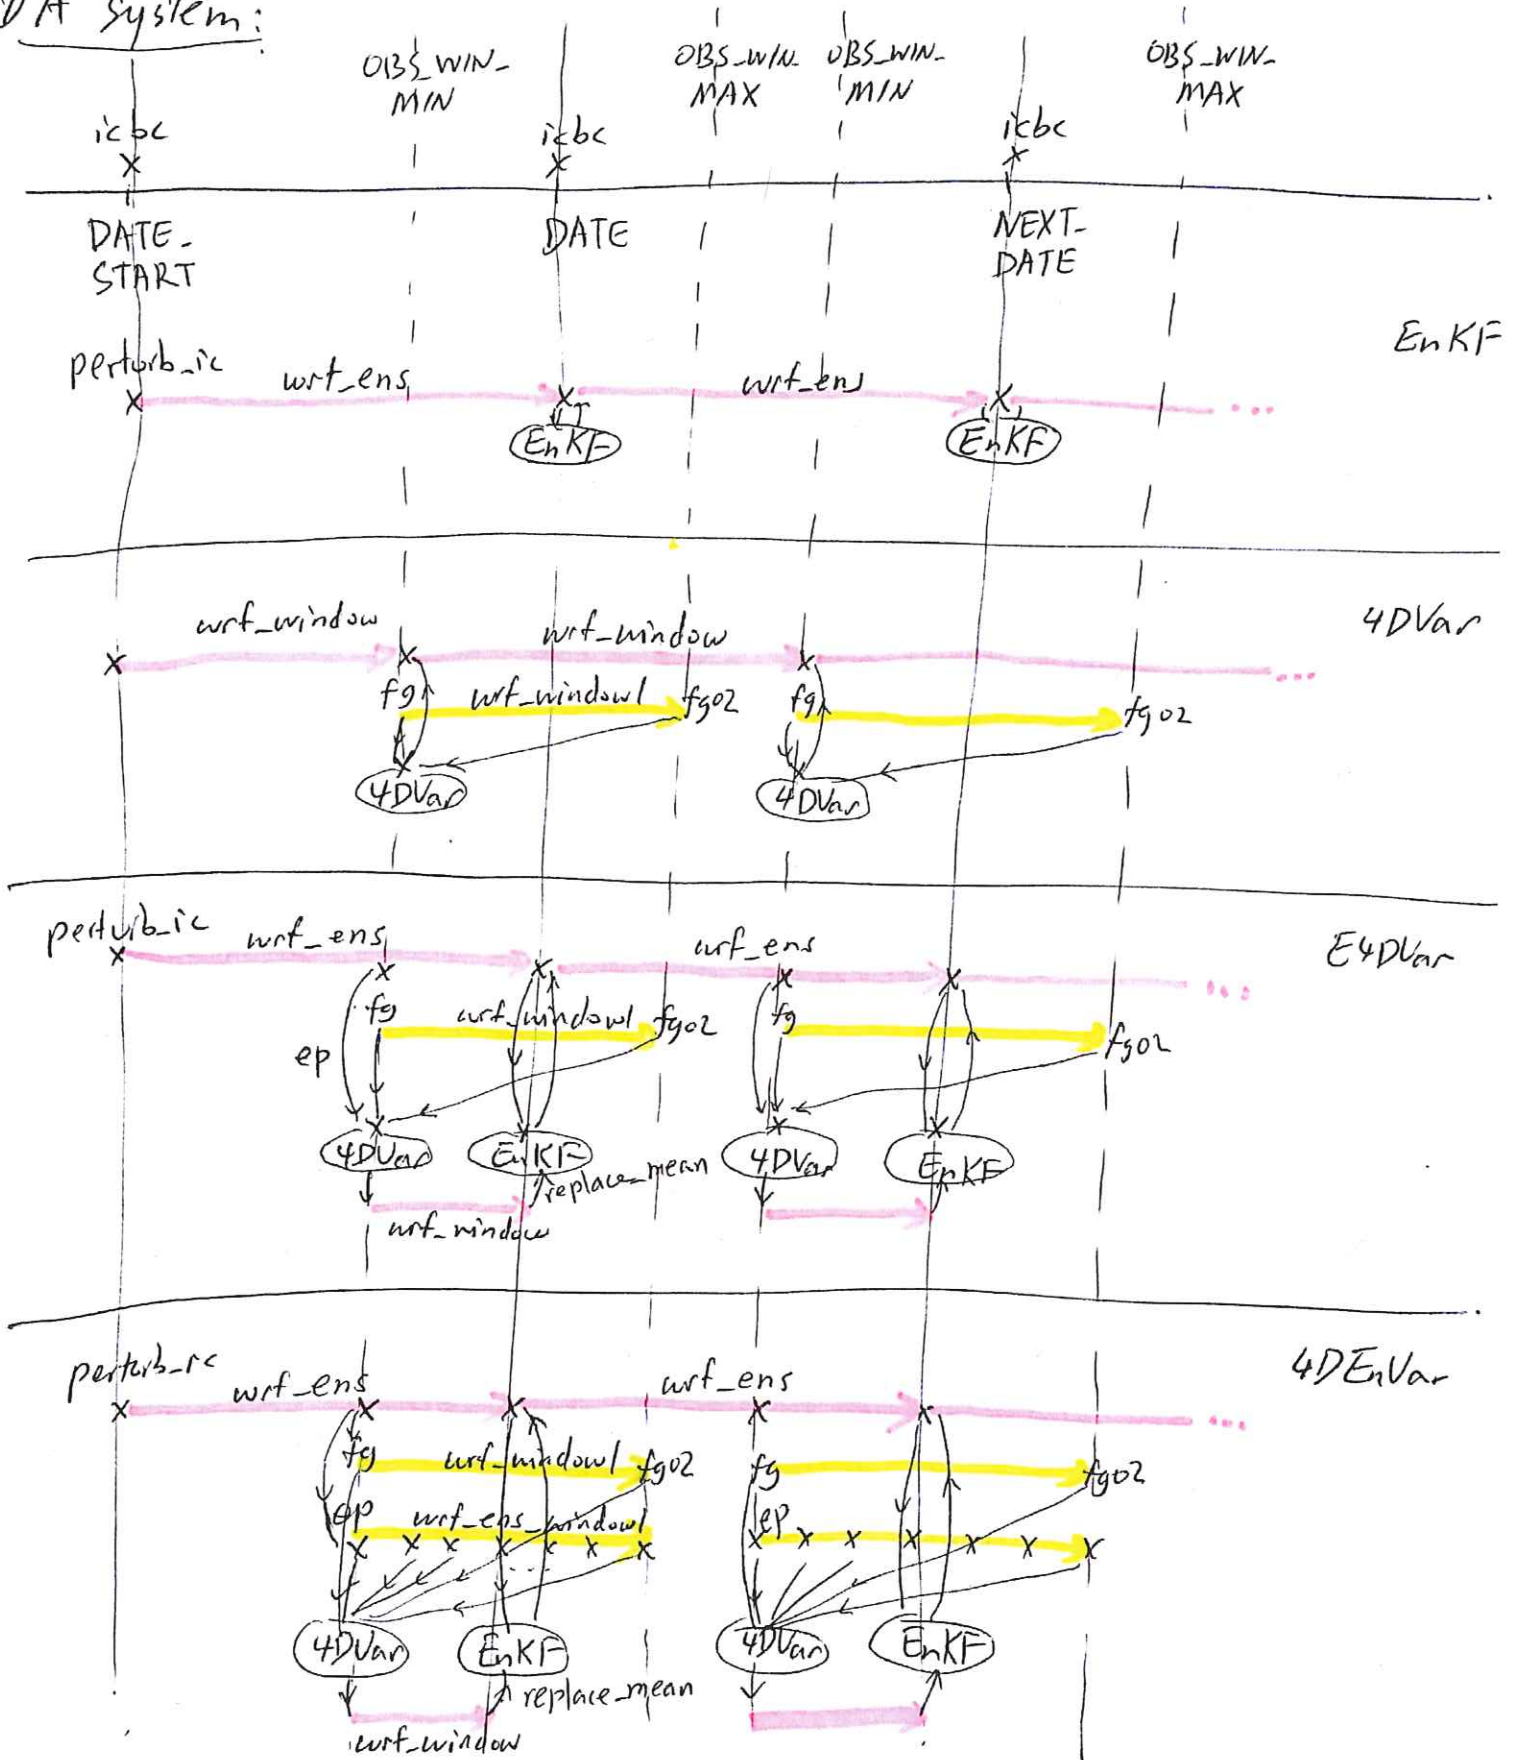 DA system:
OBS_WIN_
MIN
OBS_WIN_
MAX
OBS_WIN_
MIN
OBS_WIN_
MAX
icbc
icbc
icbc
DATE_
START
DATE
NEXT_
DATE
EnKF
perturb_ic
wrf_ens
wrf_ens
...
EnKF
EnKF
4DVar
wrf_window
wrf_window
...
fg
wrf_window1
fg02
fg
fg02
4DVar
4DVar
E4DVar
perturb_ic
wrf_ens
wrf_ens
...
fg
wrf_window1
fg02
fg
fg02
ep
4DVar
EnKF
replace_mean
4DVar
EnKF
wrf_window
4DEnVar
perturb_ic
wrf_ens
wrf_ens
...
fg
wrf_window1
fg02
fg
fg02
ep
wrf_ens_window1
ep
...
4DVar
EnKF
4DVar
EnKF
replace_mean
wrf_window